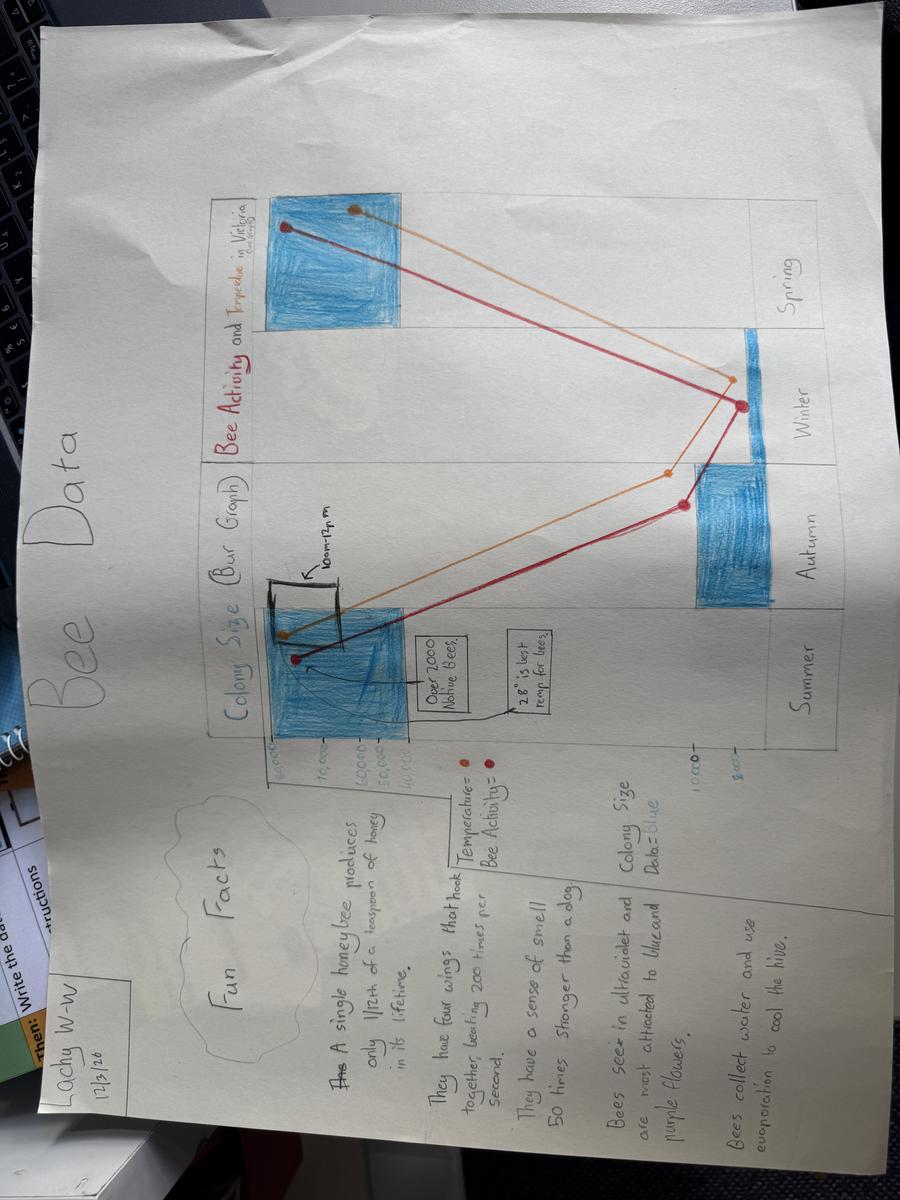 Lachy W-W
12/3/26
Bee Data
Fun Facts
A single honeybee produces
only 1/12th of a teaspoon of honey
in its lifetime.
They have four wings that hook
together, beating 200 times per
second.
They have a sense of smell
50 times stronger than a dog.
Bees see in ultraviolet and
are most attracted to blue and
purple flowers.
Bees collect water and use
evaporation to cool the hive.
Temperature=
Bee Activity=
Colony Size
Data=Blue
Colony Size (Bar Graph)
Bee Activity and Temperature in Victoria
80,000
70,000
60,000
50,000
40,000
10,000
10am-12pm
Over 2000
Native Bees.
28° is best
temp for bees.
Summer
Autumn
Winter
Spring
Then: Write the da
tructions